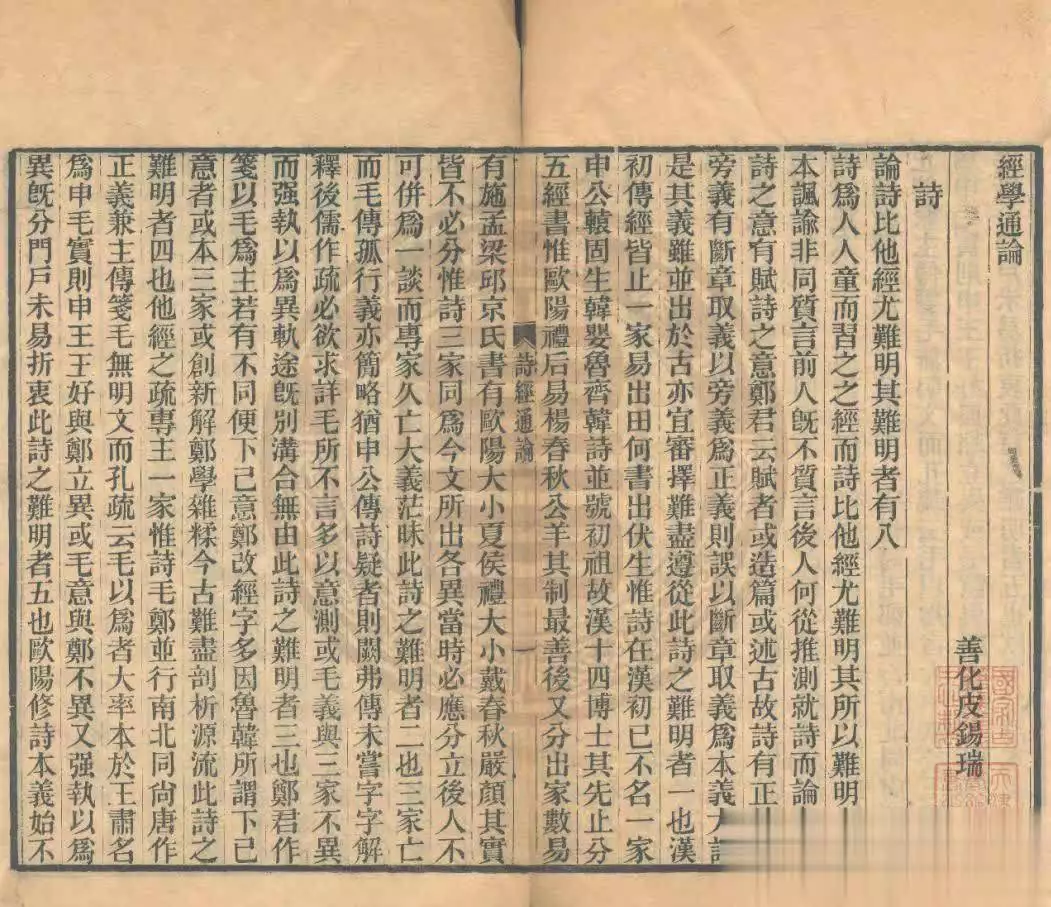 經學通論
善化皮錫瑞
詩
論詩比他經尤難明其難明者有八
詩爲人人童而習之之經而詩比他經尤難明其所以難明
本諷諭非同質言前人旣不質言後人何從推測就詩而論
詩之意有賦詩之意鄭君云賦者或造篇或述古故詩有正
旁義有斷章取義以旁義爲正義則誤以斷章取義爲本義
是其義雖並出於古亦宜審擇難盡遵從此詩之難明者一也漢
初傳經皆止一家易出田何書出伏生惟詩在漢初已不名一家
申公轅固生韓嬰魯齊韓詩並號初祖故漢十四博士其先止分
五經書惟歐陽禮后易楊春秋公羊其制最善後又分出家數易
詩經通論
一
有施孟梁邱京氏書有歐陽大小夏侯禮大小戴春秋嚴顏其實
皆不必分惟詩三家同爲今文所出各異當時必應分立後人不
可併爲一談而專家久亡大義茫昧此詩之難明者二也三家亡
而毛傳孤行義亦簡略猶申公傳詩疑者則闕弗傳未嘗字字解
釋後儒作疏必欲求詳毛所不言多以意測或毛義與三家不異
而强執以爲異軌途旣別溝合無由此詩之難明者三也鄭君作
箋以毛爲主若有不同便下己意鄭改經字多因魯韓所謂下已
意者或本三家或創新解鄭學雜糅今古難盡剖析源流此詩之
難明者四也他經之疏專主一家惟詩毛鄭並行南北同尙唐作
正義兼主傳箋毛無明文而孔疏云毛以爲者大率本於王肅名
爲申毛實則申王王好與鄭立異或毛意與鄭不異又强執以爲
異旣分門戶未易折衷此詩之難明者五也歐陽修詩本義始不